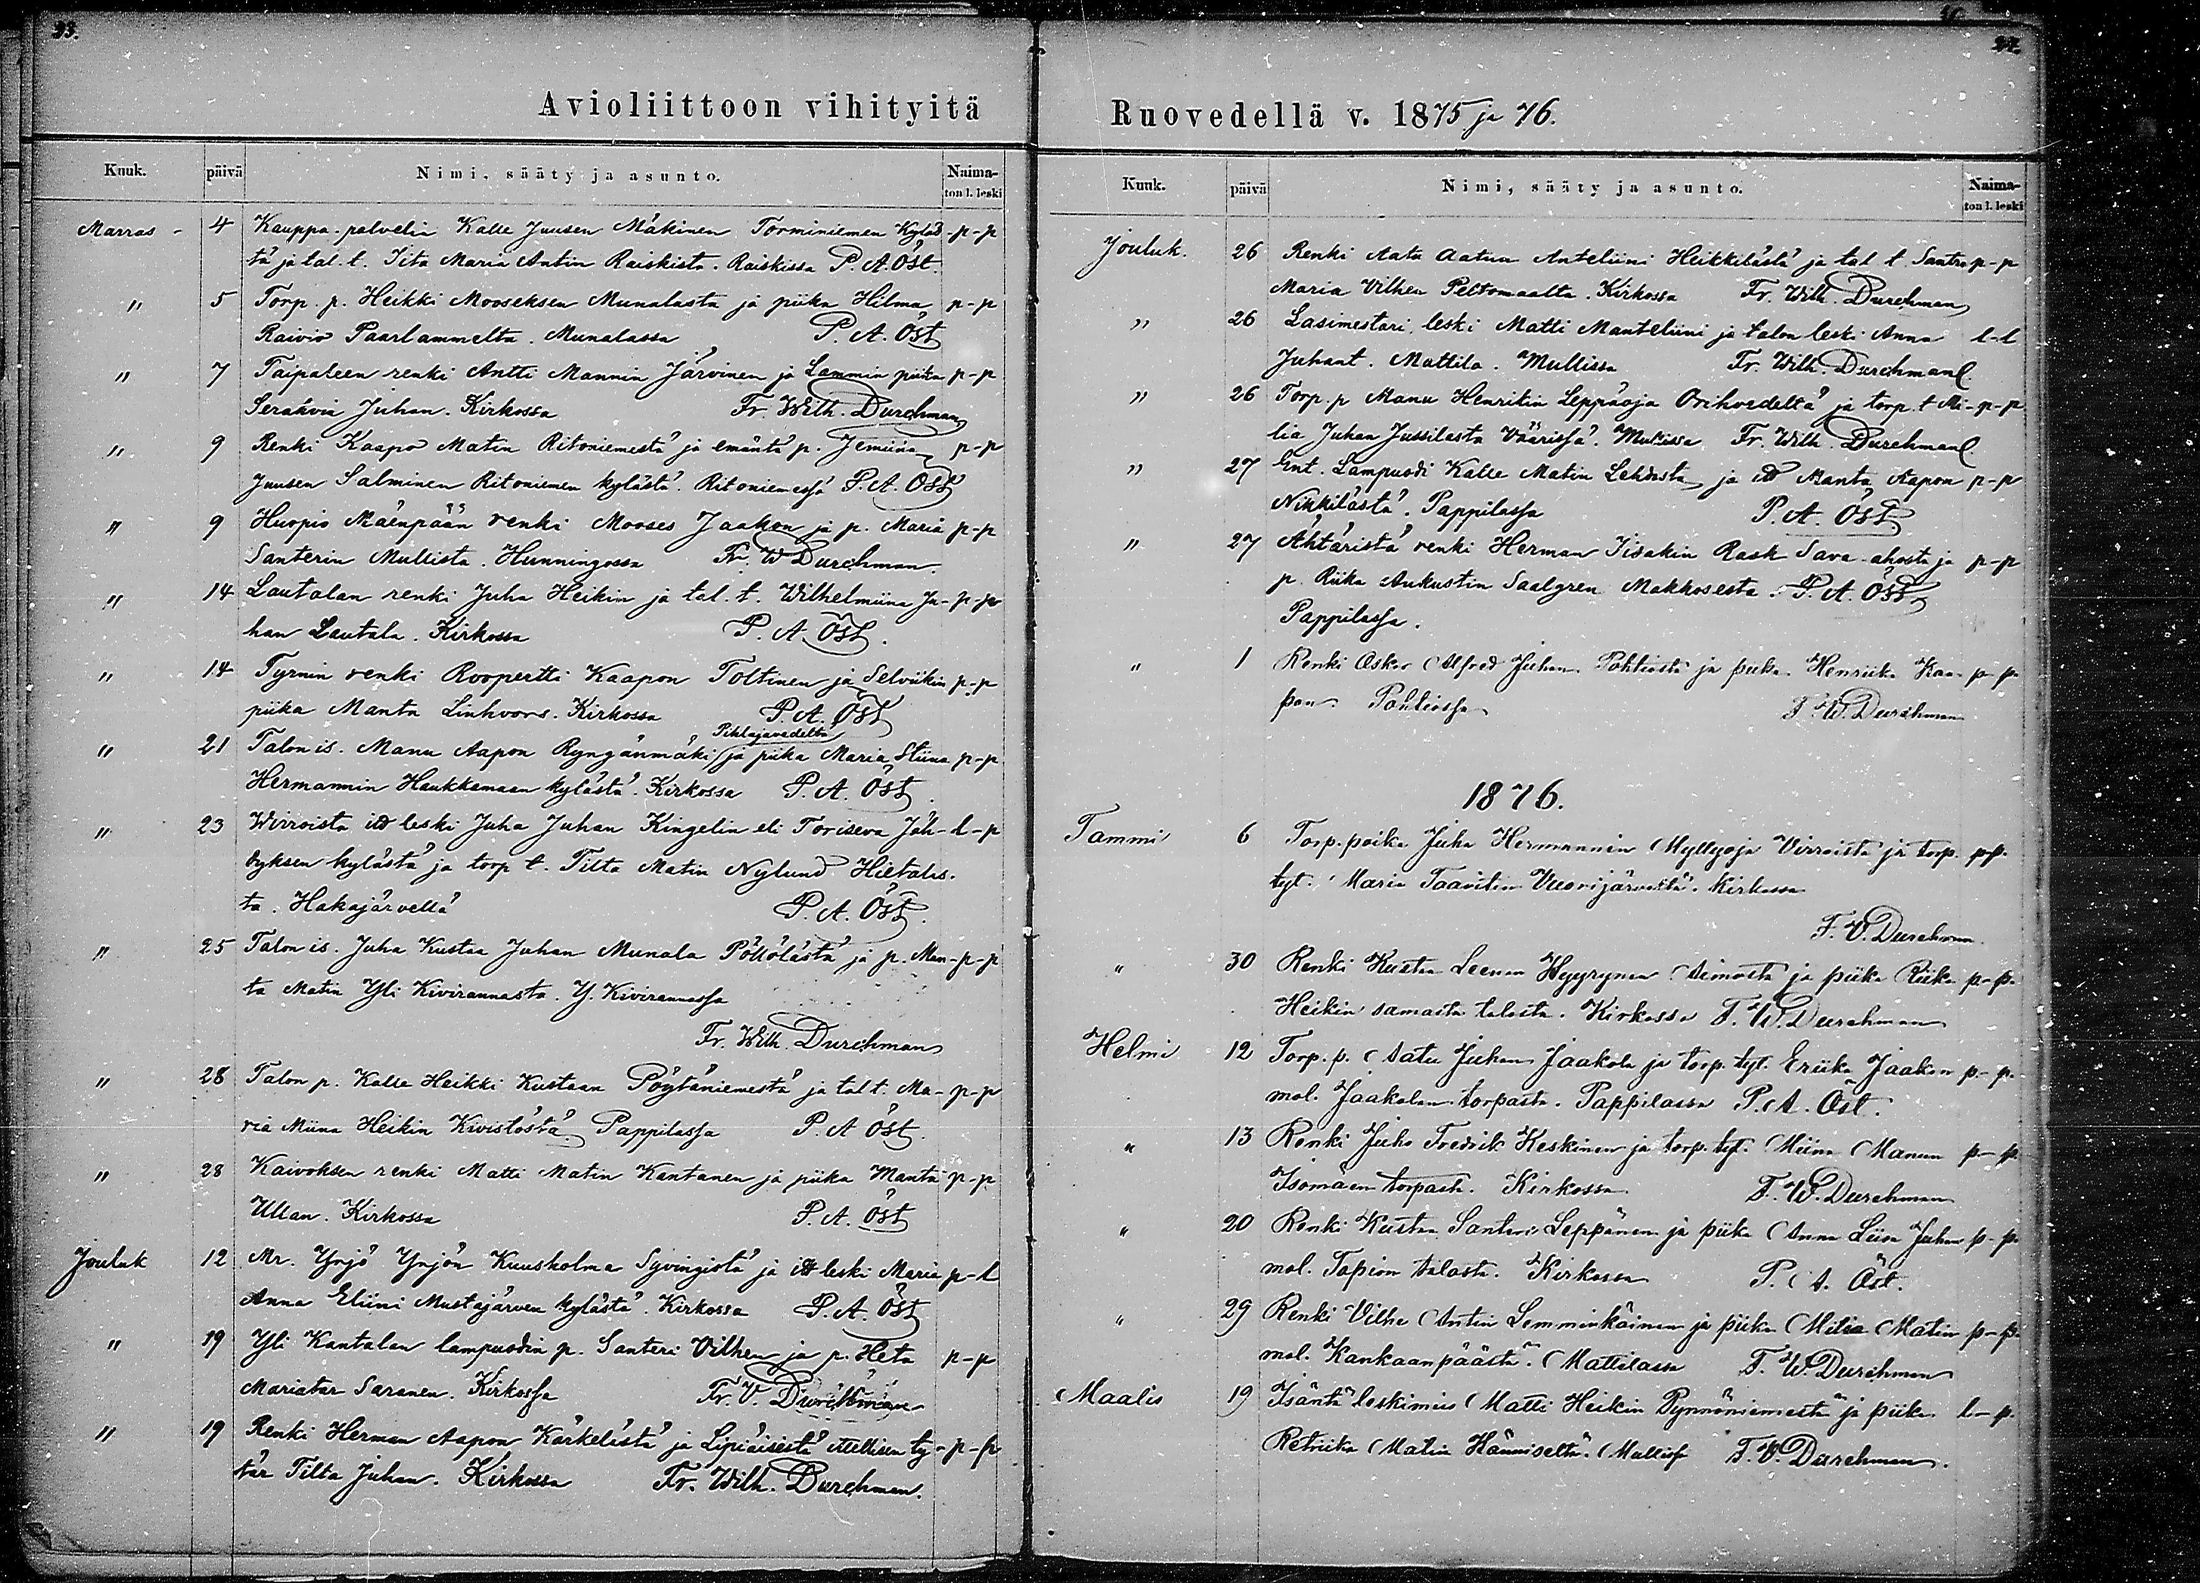 33.
Avioliittoon vihityitä
Kuuk. päivä Nimi, sääty ja asunto. Naimaton l. leski
Marras - 4 Kauppa-palvelia Kalle Juusen Mäkinen Torminiemen Kyläs- p-p
tä ja tal. t. Iita Maria Antin Raiskista. Raiskissa P. A. Öst.
" 5 Torp. p. Heikki Mooseksen Munalasta ja piika Hilma p-p
Raivio Paarlammelta. Munalassa P. A. Öst
" 7 Taipaleen renki Antti Mannin Järvinen ja Lammin piika p-p
Serahvia Juhan. Kirkossa Fr. Wilh. Durchman
" 9 Renki Kaapo Matin Ritoniemestä ja emäntä p. Jemiina p-p
Juusen Salminen Ritoniemen kylästä. Ritoniemessä P. A. Öst
" 9 Huopio Mäenpään renki Mooses Jaakon ja p. Maria p-p
Santerin Mullista. Hunningossa Fr. W Durchman.
" 14 Lautalan renki Juha Heikin ja tal. t. Wilhelmiina Ju- p-p
han Lautala. Kirkossa P. A. Öst.
" 14 Tyrnin renki Roopertti Kaapon Toltinen ja Selviikin p-p
piika Manta Linhvors. Kirkossa P. A. Öst
Pihlajavedeltä
" 21 Talon is. Manu Aapon Ryngänmäki ja piika Maria Stiina p-p
Hermannin Haukkamaan kylästä. Kirkossa P. A. Öst.
" 23 Wirroista itll leski Juha Juhan Kingelin eli Toriseva Jäh- l-p
dyksen kylästä ja torp t. Tilta Matin Nylund Hietalas-
ta. Hakajärvellä P. A. Öst.
" 25 Talon is. Juha Kustaa Juhan Munala Pöllölästä ja p. Man- p-p
ta Matin Yli Kivirannasta. Y. Kivirannassa
Fr. Wilh. Durchman
" 28 Talon p. Kalle Heikki Kustaan Pöytäniemestä ja tal t. Ma- p-p
ria Miina Heikin Kivistöstä. Pappilassa P. A Öst.
" 28 Kaivoksen renki Matti Matin Kantanen ja piika Manta p-p
Ullan. Kirkossa P. A. Öst
Jouluk 12 Mr. Yrjö Yrjön Kuusholma Syvingistä ja itll leski Maria p-l
Anna Eliini Mustajärven kylästä. Kirkossa P. A. Öst
" 19 Yli Kantalan lampuodin p. Santeri Vilhen ja p. Heta p-p
Mariatar Saranen. Kirkossa Fr. V. Durchman
" 19 Renki Herman Aapon Kärkelästä ja Lipiäisestä itellisen ty- p-p
tär Tilta Juhan. Kirkossa Fr. Wilh. Durchman.
Ruovedellä v. 1875 ja 76.
Kuuk. päivä Nimi, sääty ja asunto. Naimaton l. leski
Jouluk. 26 Renki Aatu Aatun Anteliini Heikkilästä ja tal t. Santra p-p
Maria Vilhen Peltomaalta. Kirkossa Fr. Wilh. Durchman
" 26 Lasimestari leski Matti Manteliini ja talon leski Anna l-l
Juhant. Mattila. Mullissa Fr. Wilh. Durchman.
" 26 Torp. p Manu Henrikin Leppäoja Orihvedeltä ja torp. t Mi- p-p
lia Juhan Jussilasta Väärissä. Mullissa Fr. Wilh. Durchman.
" 27 Ent. Lampuodi Kalle Matin Lehdosta ja itll Manta Aapon p-p
Nikkilästä. Pappilassa P. A. Öst.
" 27 Ähtäristä renki Herman Iisakin Rask Sava-ahosta ja p-p
p. Riika Aukustin Saalgren Makkosesta. P. A. Öst
Pappilassa.
" 1 Renki Oskar Alfred Juhan Pohtiosta ja piika Henriika Kaa- p-p.
pon Pohtiossa F. W. Durchman
1876.
Tammi 6 Torp. poika Juha Hermannin Myllyoja Virroista ja torp. p-p.
tyt. Maria Taavitin Vuorijärveltä. Kirkossa
F. V. Durchman.
" 30 Renki Kustaa Leenan Hyyrynen Aimosta ja piika Riika p-p.
Heikin samasta talosta. Kirkossa F. W. Durchman
Helmi 12 Torp. p. Aatu Juhan Jaakola ja torp. tyt. Eriika Jaakon p-p.
mol. Jaakolan torpasta. Pappilassa P. A. Öst.
" 13 Renki Juho Fredrik Keskinen ja torp. tyt. Miina Manun p-p
Isomäen torpasta. Kirkossa F. W. Durchman
" 20 Renki Kustaa Santeri Leppänen ja piika Anna Liisa Juhan p-p
mol. Tapion talosta. Kirkossa P. A. Öst.
" 29 Renki Vilhe Antin Lemminkäinen ja piika Milia Matin p-p.
mol. Kankaanpäästä. Mattilassa F. W. Durchman
Maalis 19 Isäntä leskimies Matti Heikin Pynnöniemestä ja piika l-p.
Retriika Matin Hänniseltä. F. V. Durchman.